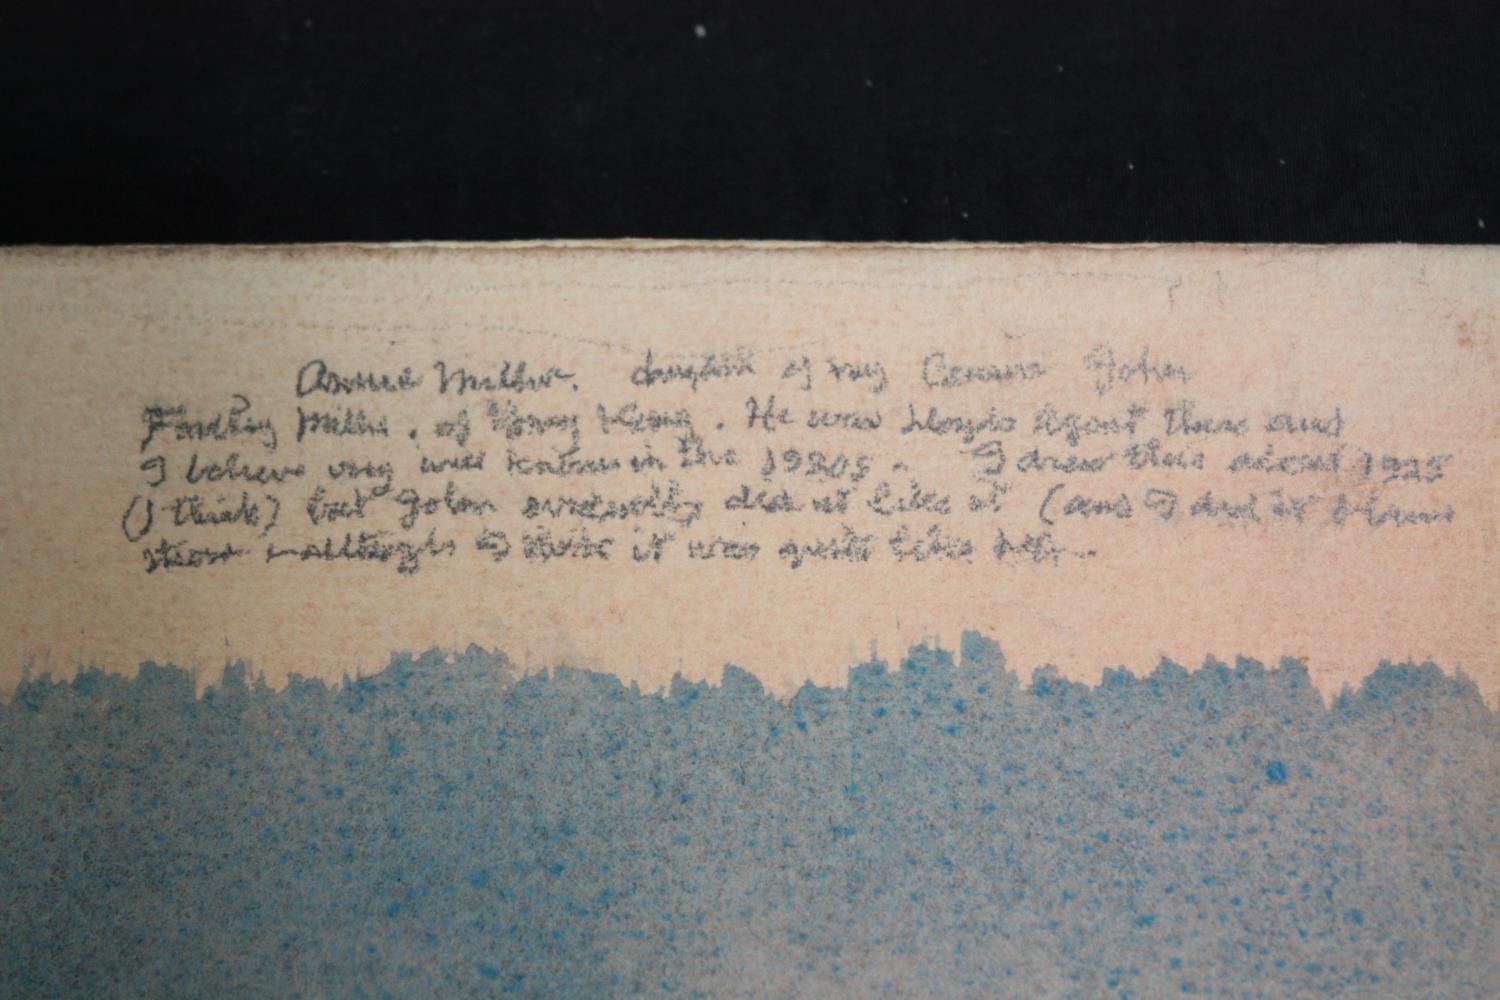 Annie Miller. daughter of my Cousin John
Finlay Miller, of Hong Kong. He was Lloyds Agent there and
I believe very well known in the 1920s. I drew this about 1925
(I think) but John evidently did not like it (and I did it
although I think it was quite like her.